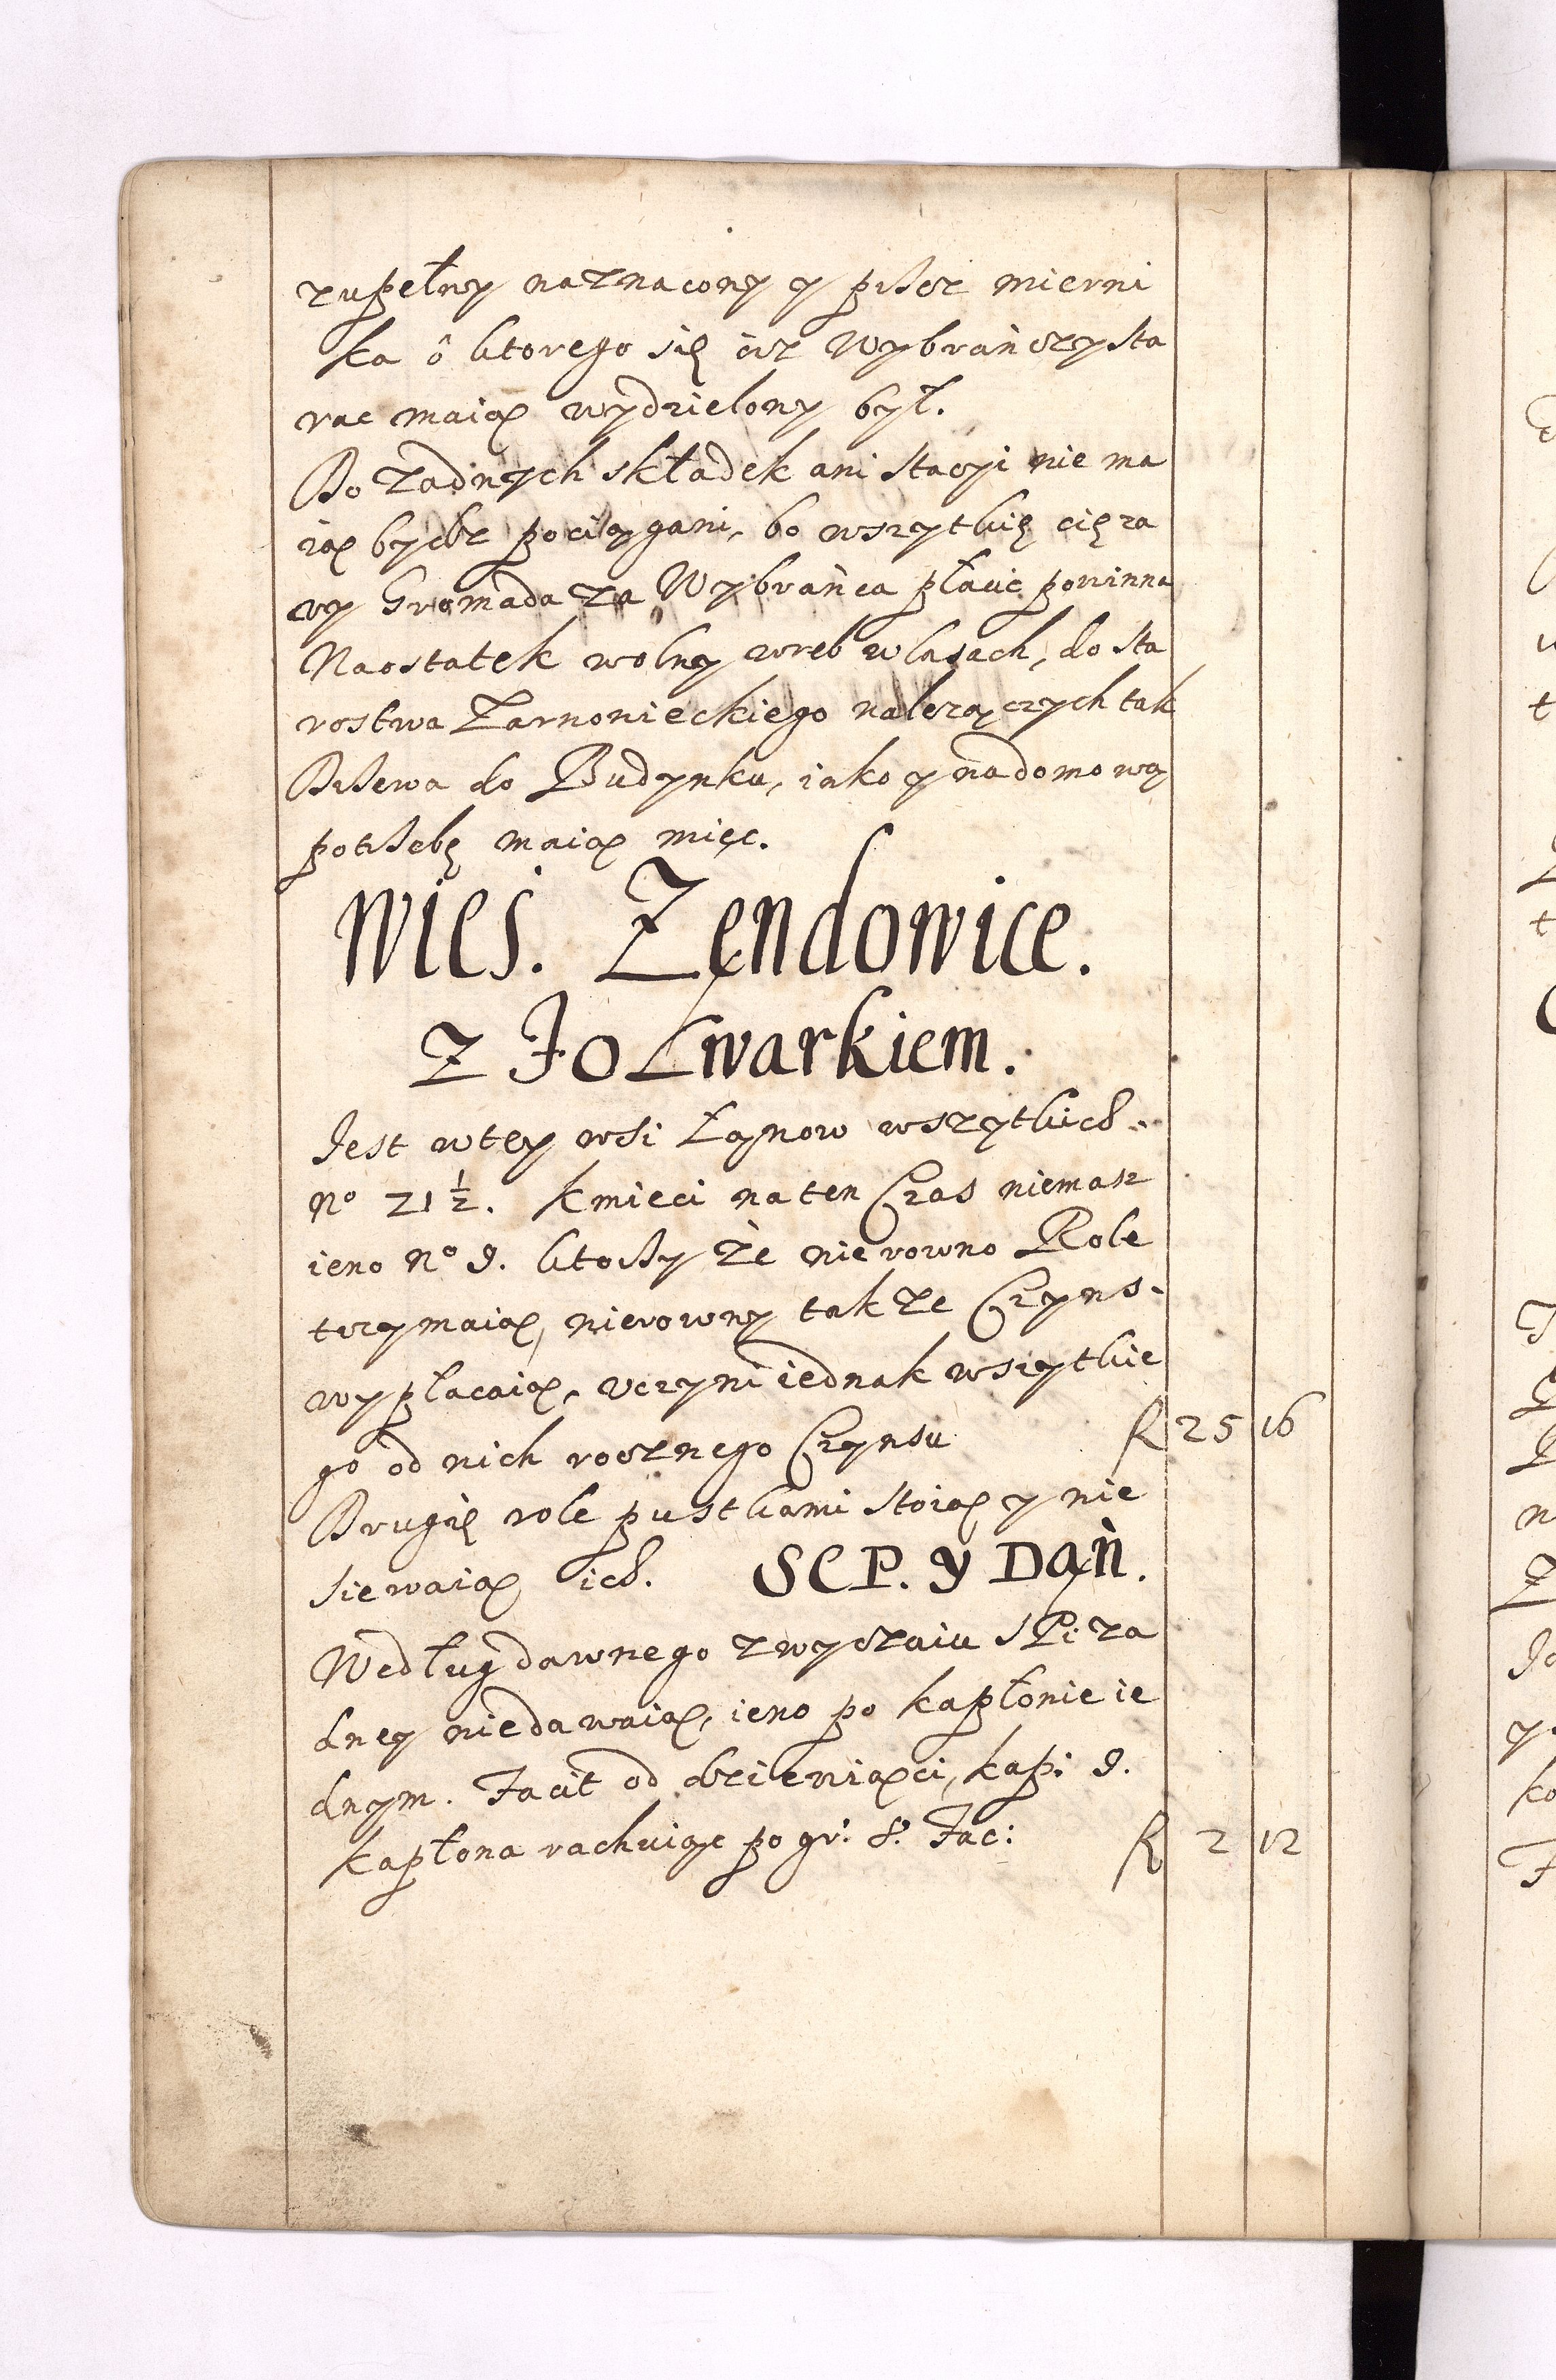 zupełny naznacony y przez mierni
ka o ktorego się ciz Wybrańczy sta
rac maią wydzielony był.
Do żadnych składek ani stacyi nie ma
ią bydz pociągani, bo wszytkię cięza
ry Gromada za Wybrańca płacic powinna
Naostatek wolny wreb w lasach, do sta
rostwa Zarnowieckiego nalezączych tak
Drzewa do Budynku, iako y na domową
potrzebę maią miec.
Wieś. Zendowice.
Z Folwarkiem.
Jest w tey wsi Łanow wszytkich.
No 21 1/2. Kmieci na ten Czas niemasz
ieno No 9. ktorzy że nierowno Role
trzymaią, nierowny takze Czyns.
wypłacaią, vczyni iednak wszytkie
go od nich rocznego Czynsu R 25 16
Drugię role pustkami stoią y nie
siewaią ich. SEP. y Dań.
Według dawnego zwyczaiu SPi za
dney niedawaią, ieno po kapłonie ie
dnym. Facit od dziewiąci, kap: 9.
kapłona rachuiąc po gr: 8. Fac: R 2 12